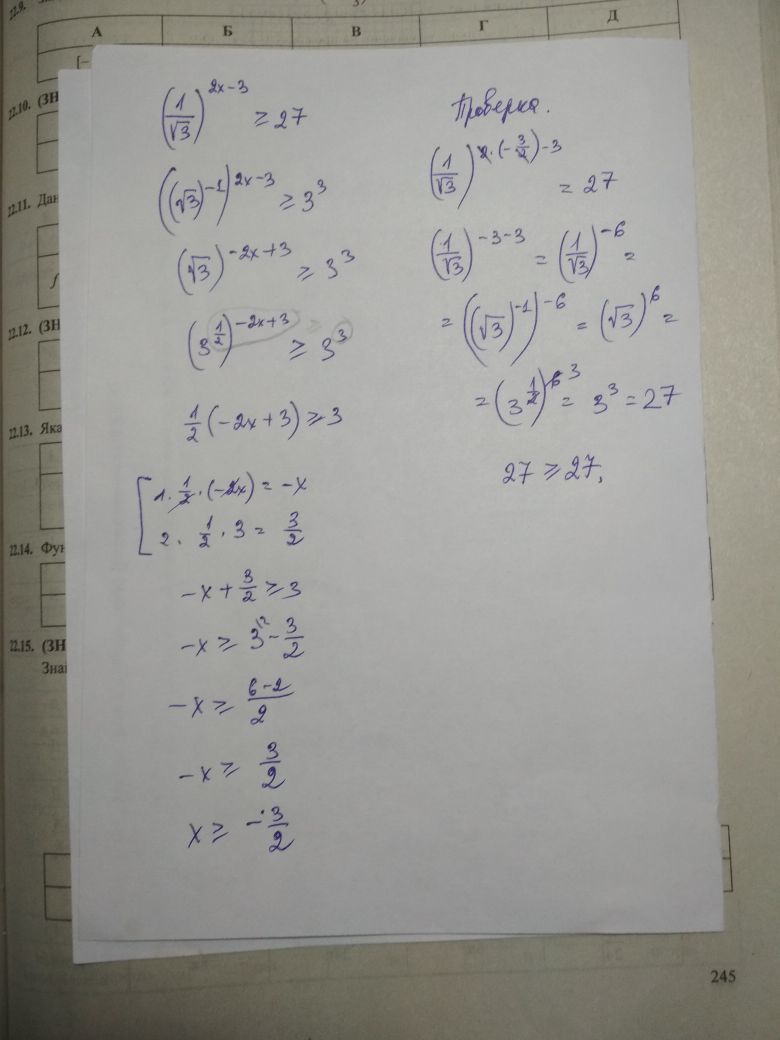 22.9.
А Б В Г Д
22.10. (ЗН
22.11. Дан
f
22.12. (ЗН
22.13. Яка
22.14. Фун
22.15. (ЗН
Знай
(1/√3)^(2x-3) ≥ 27
((√3)^(-1))^(2x-3) ≥ 3^3
(√3)^(-2x+3) ≥ 3^3
(3^(1/2))^(-2x+3) ≥ 3^3
1/2 (-2x+3) ≥ 3
1. 1/2 · (-2x) = -x
2. 1/2 · 3 = 3/2
-x + 3/2 ≥ 3
-x ≥ 3 - 3/2
-x ≥ (6-2)/2
-x ≥ 3/2
x ≥ -3/2
Проверка.
(1/√3)^(2·(-3/2)-3) = 27
(1/√3)^(-3-3) = (1/√3)^(-6) =
= ((√3)^(-1))^(-6) = (√3)^6 =
= (3^(1/2))^6 3 = 3^3 = 27
27 ≥ 27,
245